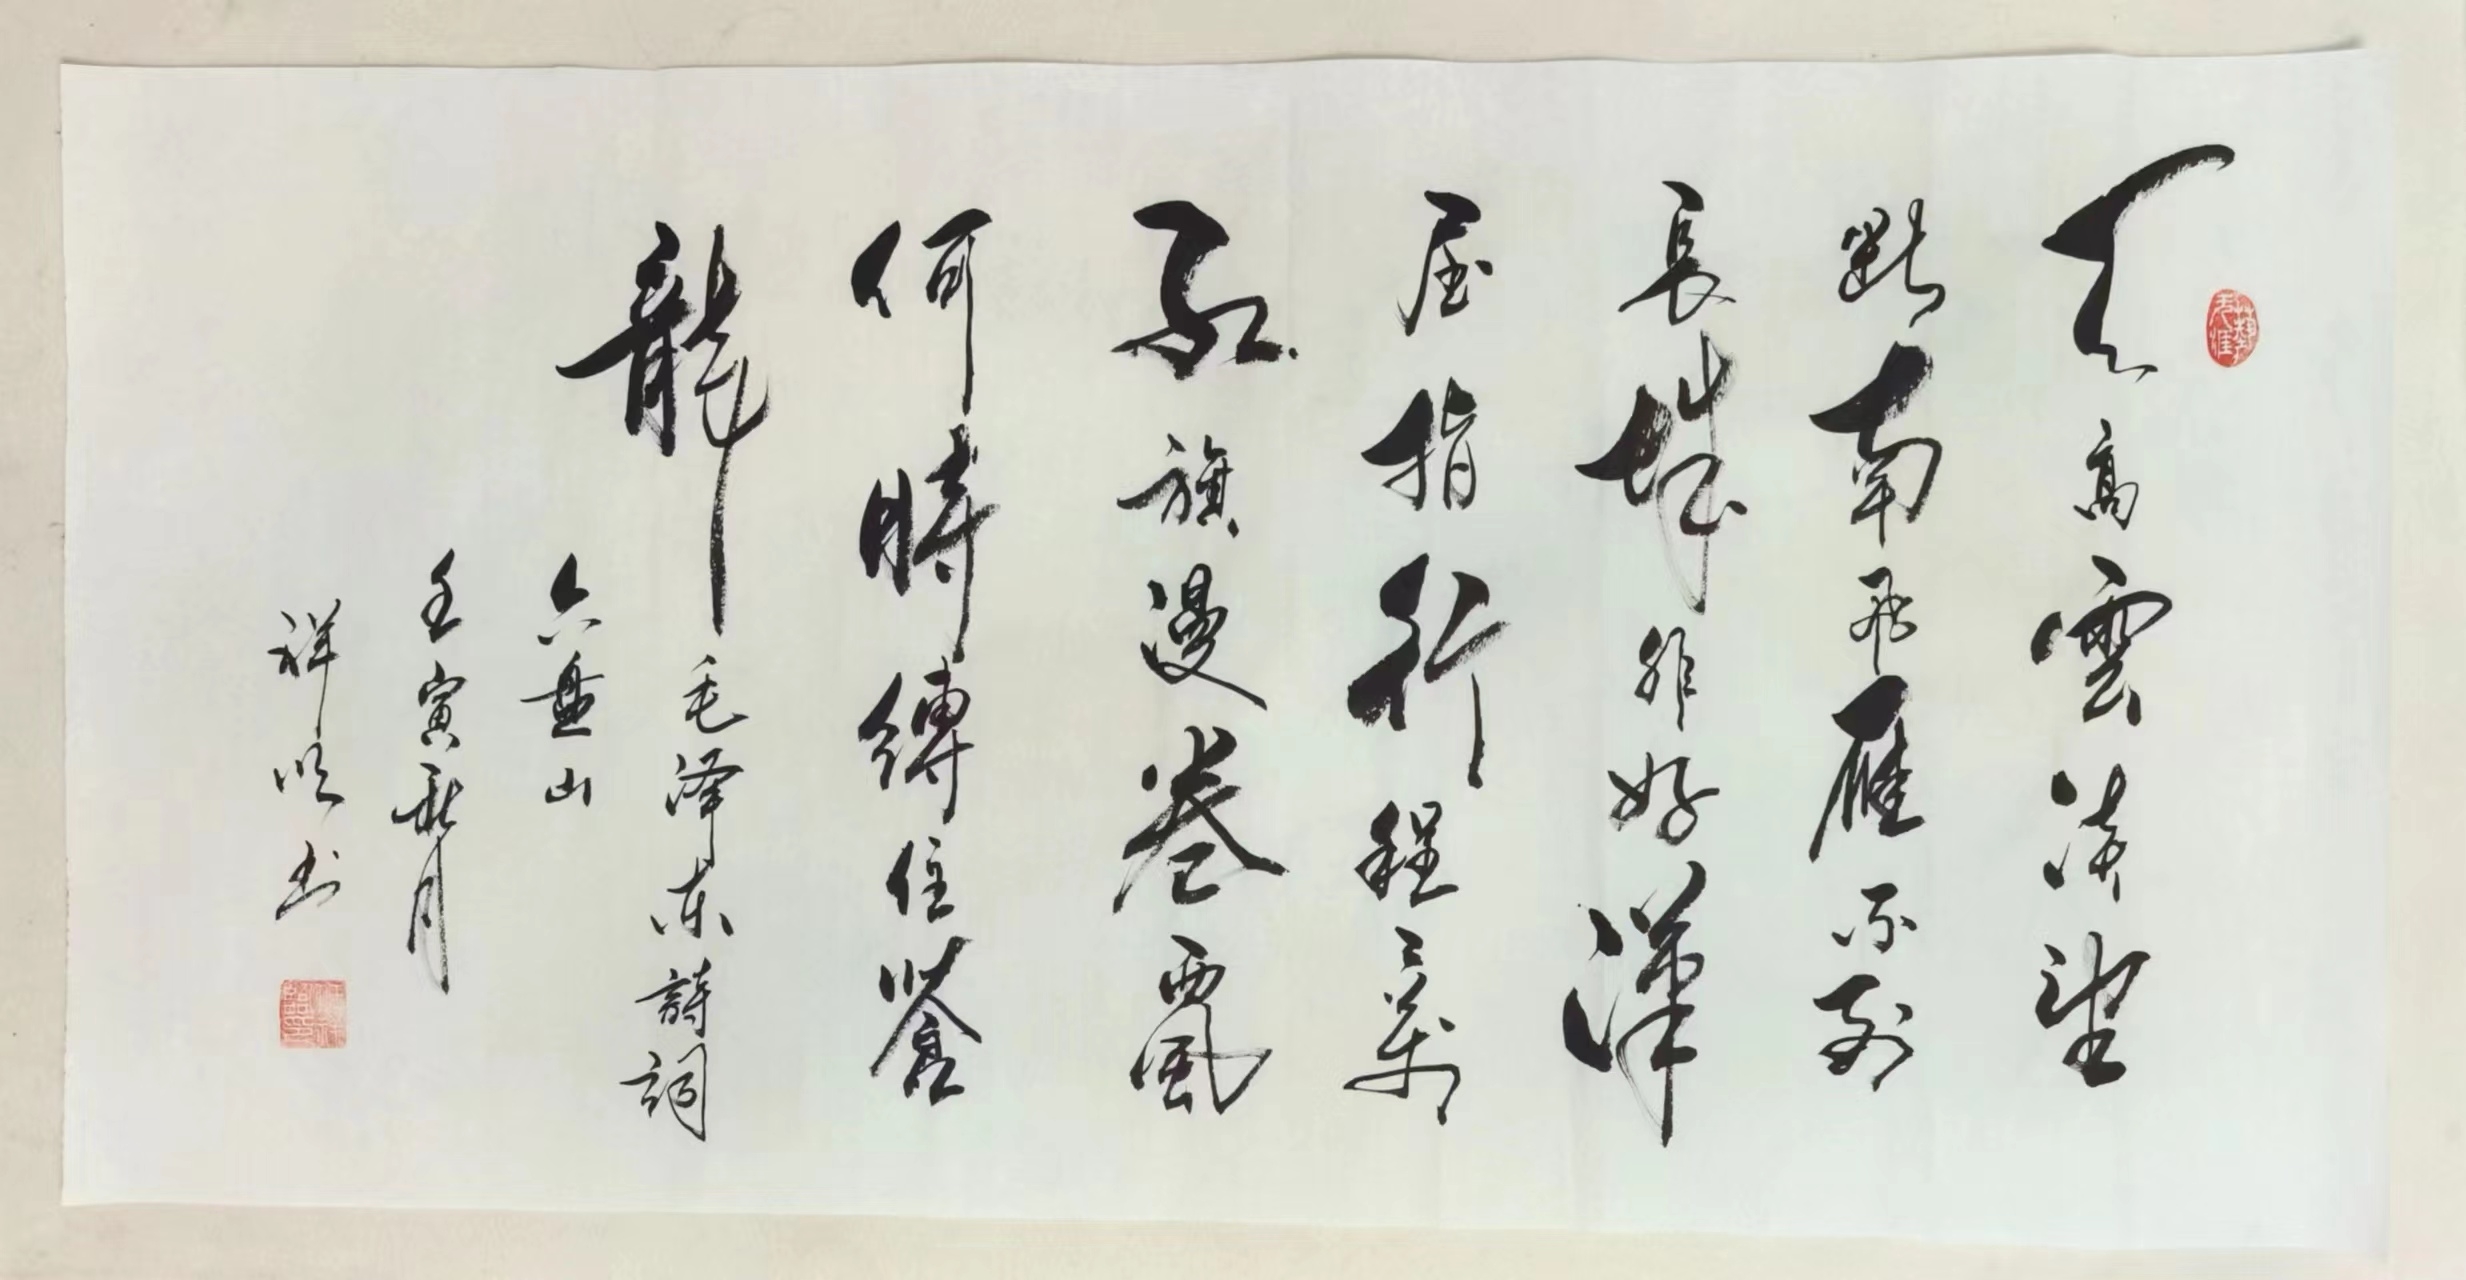 藝无涯
天高雲淡望
断南飛雁不到
長城非好漢
屈指行程二萬
红旗漫卷西風
何時縛住蒼
龍
毛泽东詩詞
六盘山
壬寅秋月
祥书